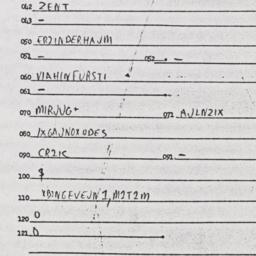 042 ZENT
043 -
050 ERZINDERHAJM
051 - 052 -
060 VIAHINFURSTI
061 -
070 MIRJUG+ 071 AJLNZIX
080 IXGAJNOXODES
090 CRZIC 091 -
100 $
110 XBINGEVEJN1,MJTZM
120 0
121 0